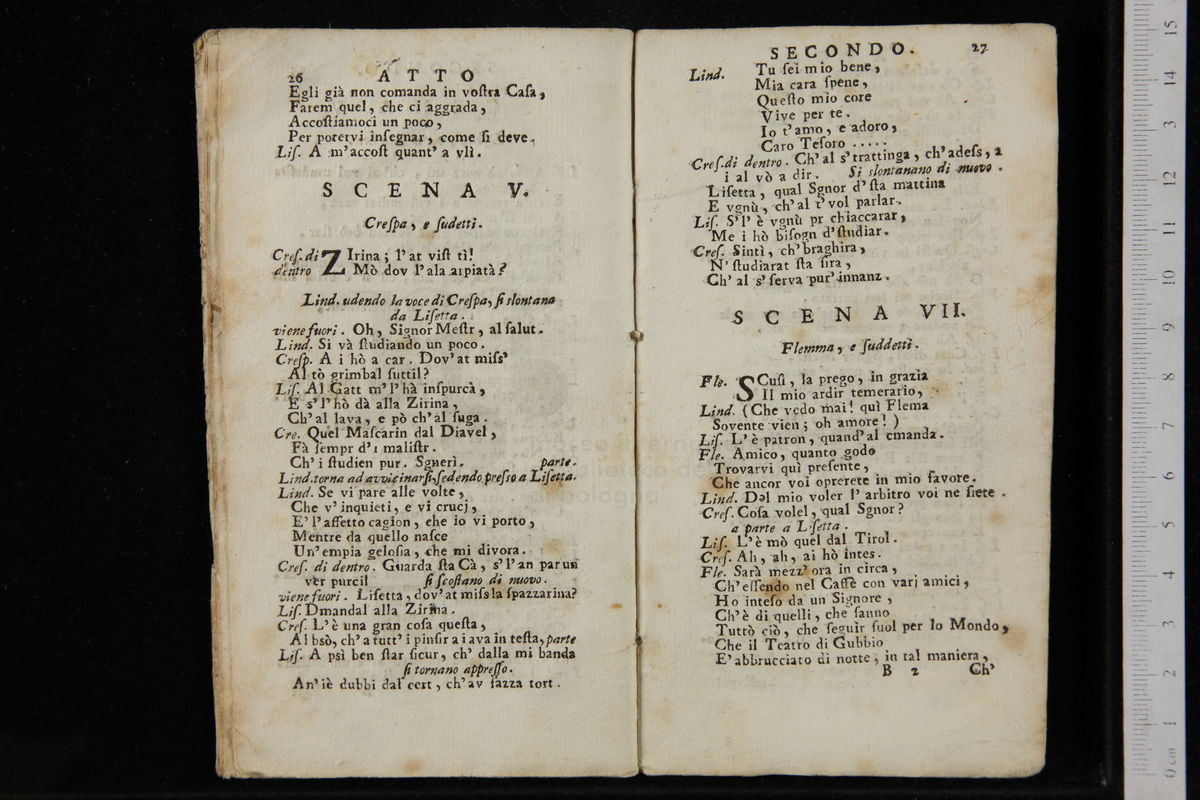 26 ATTO
Egli già non comanda in vostra Casa,
Farem quel, che ci aggrada,
Accostiamoci un poco,
Per potervi insegnar, come si deve.
Lis. A m'accost quant' a vlì.
SCENA V.
Crespa, e sudetti.
Cres. di dentro ZIrina; l'at vist tì!
Mò dov l'ala arpiatà?
Lind. udendo la voce di Crespa, si slontana
da Lisetta.
viene fuori. Oh, Signor Mestr, al salut.
Lind. Si và studiando un poco.
Cresp. A i hò a car. Dov'at miss'
Al tò grimbal suttil?
Lis. Al Gatt m'l'hà inspurcà,
E s'l'hò dà alla Zirina,
Ch'al lava, e pò ch'al suga.
Cre. Quel Mascarin dal Diavel,
Fà sempr d'i malistr.
Ch'i studien pur. Sgnerì. parte.
Lind. torna ad avvicinarsi, sedendo presso a Lisetta.
Lind. Se vi pare alle volte,
Che v'inquieti, e vi crucj,
E' l'affetto cagion, che io vi porto,
Mentre da quello nasce
Un'empia gelosia, che mi divora.
Cres. di dentro. Guarda sta Cà, s'l'an par un
vèr purcil si scostano di nuovo.
viene fuori. Lisetta, dov'at miss la spazzarina?
Lis. Dmandal alla Zirina.
Cres. L'è una gran cosa questa,
Al bsò, ch'a tutt' i pinsir a i ava in testa, parte
Lis. A psì ben star sicur, ch' dalla mi banda
si tornano appresso.
An' iè dubbi dal cert, ch'av fazza tort.
SECONDO. 27
Lind. Tu sei mio bene,
Mia cara spene,
Questo mio core
Vive per te.
Io t'amo, e adoro,
Caro Tesoro .....
Cres. di dentro. Ch'al s'trattinga, ch'adess, a
i al vò a dir. Si slontanano di nuovo.
Lisetta, qual Sgnor d'sta mattina
E vgnù, ch'al t'vol parlar.
Lis. S'l' è vgnù pr chiaccarar,
Me i hò bisogn d'studiar.
Cres. Sintì, ch'braghira,
N' studiarat sta sira,
Ch' al s' serva pur' innanz.
SCENA VII.
Flemma, e suddetti.
Fle. SCusi, la prego, in grazia
Il mio ardir temerario,
Lind. (Che vedo mai! quì Flema
Sovente vien; oh amore!)
Lis. L'è patron, quand'al cmanda.
Fle. Amico, quanto godo
Trovarvi quì presente,
Che ancor voi oprerete in mio favore.
Lind. Del mio voler l'arbitro voi ne siete.
Cres. Cosa volel, qual Sgnor?
a parte a Lisetta.
Lis. L'è mò quel dal Tirol.
Cres. Ah, ah, ai hò intes.
Fle. Sarà mezz'ora in circa,
Ch'essendo nel Caffè con varj amici,
Ho inteso da un Signore,
Ch'è di quelli, che sanno
Tuttò ciò, che seguir suol per lo Mondo,
Che il Teatro di Gubbio
E' abbrucciato di notte, in tal maniera,
B 2 Ch'